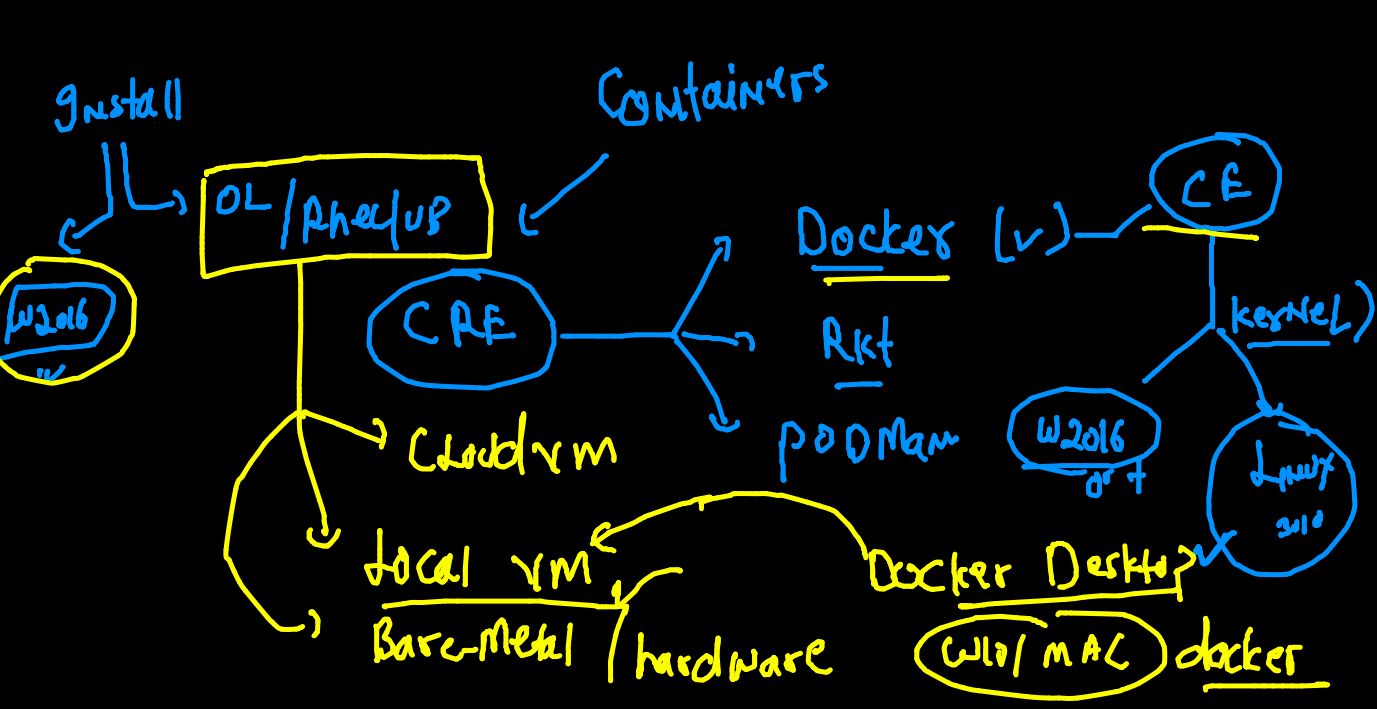 Install
Containers
OL/Rhel/UB
CE
Docker (v)
W2016
CRE
Rkt
kerNeL)
PODMan
W2016
or +
Linux
3.10
CLoud vm
Local vm
Docker Desktop
Bare-Metal / hardware
W10/MAC docker